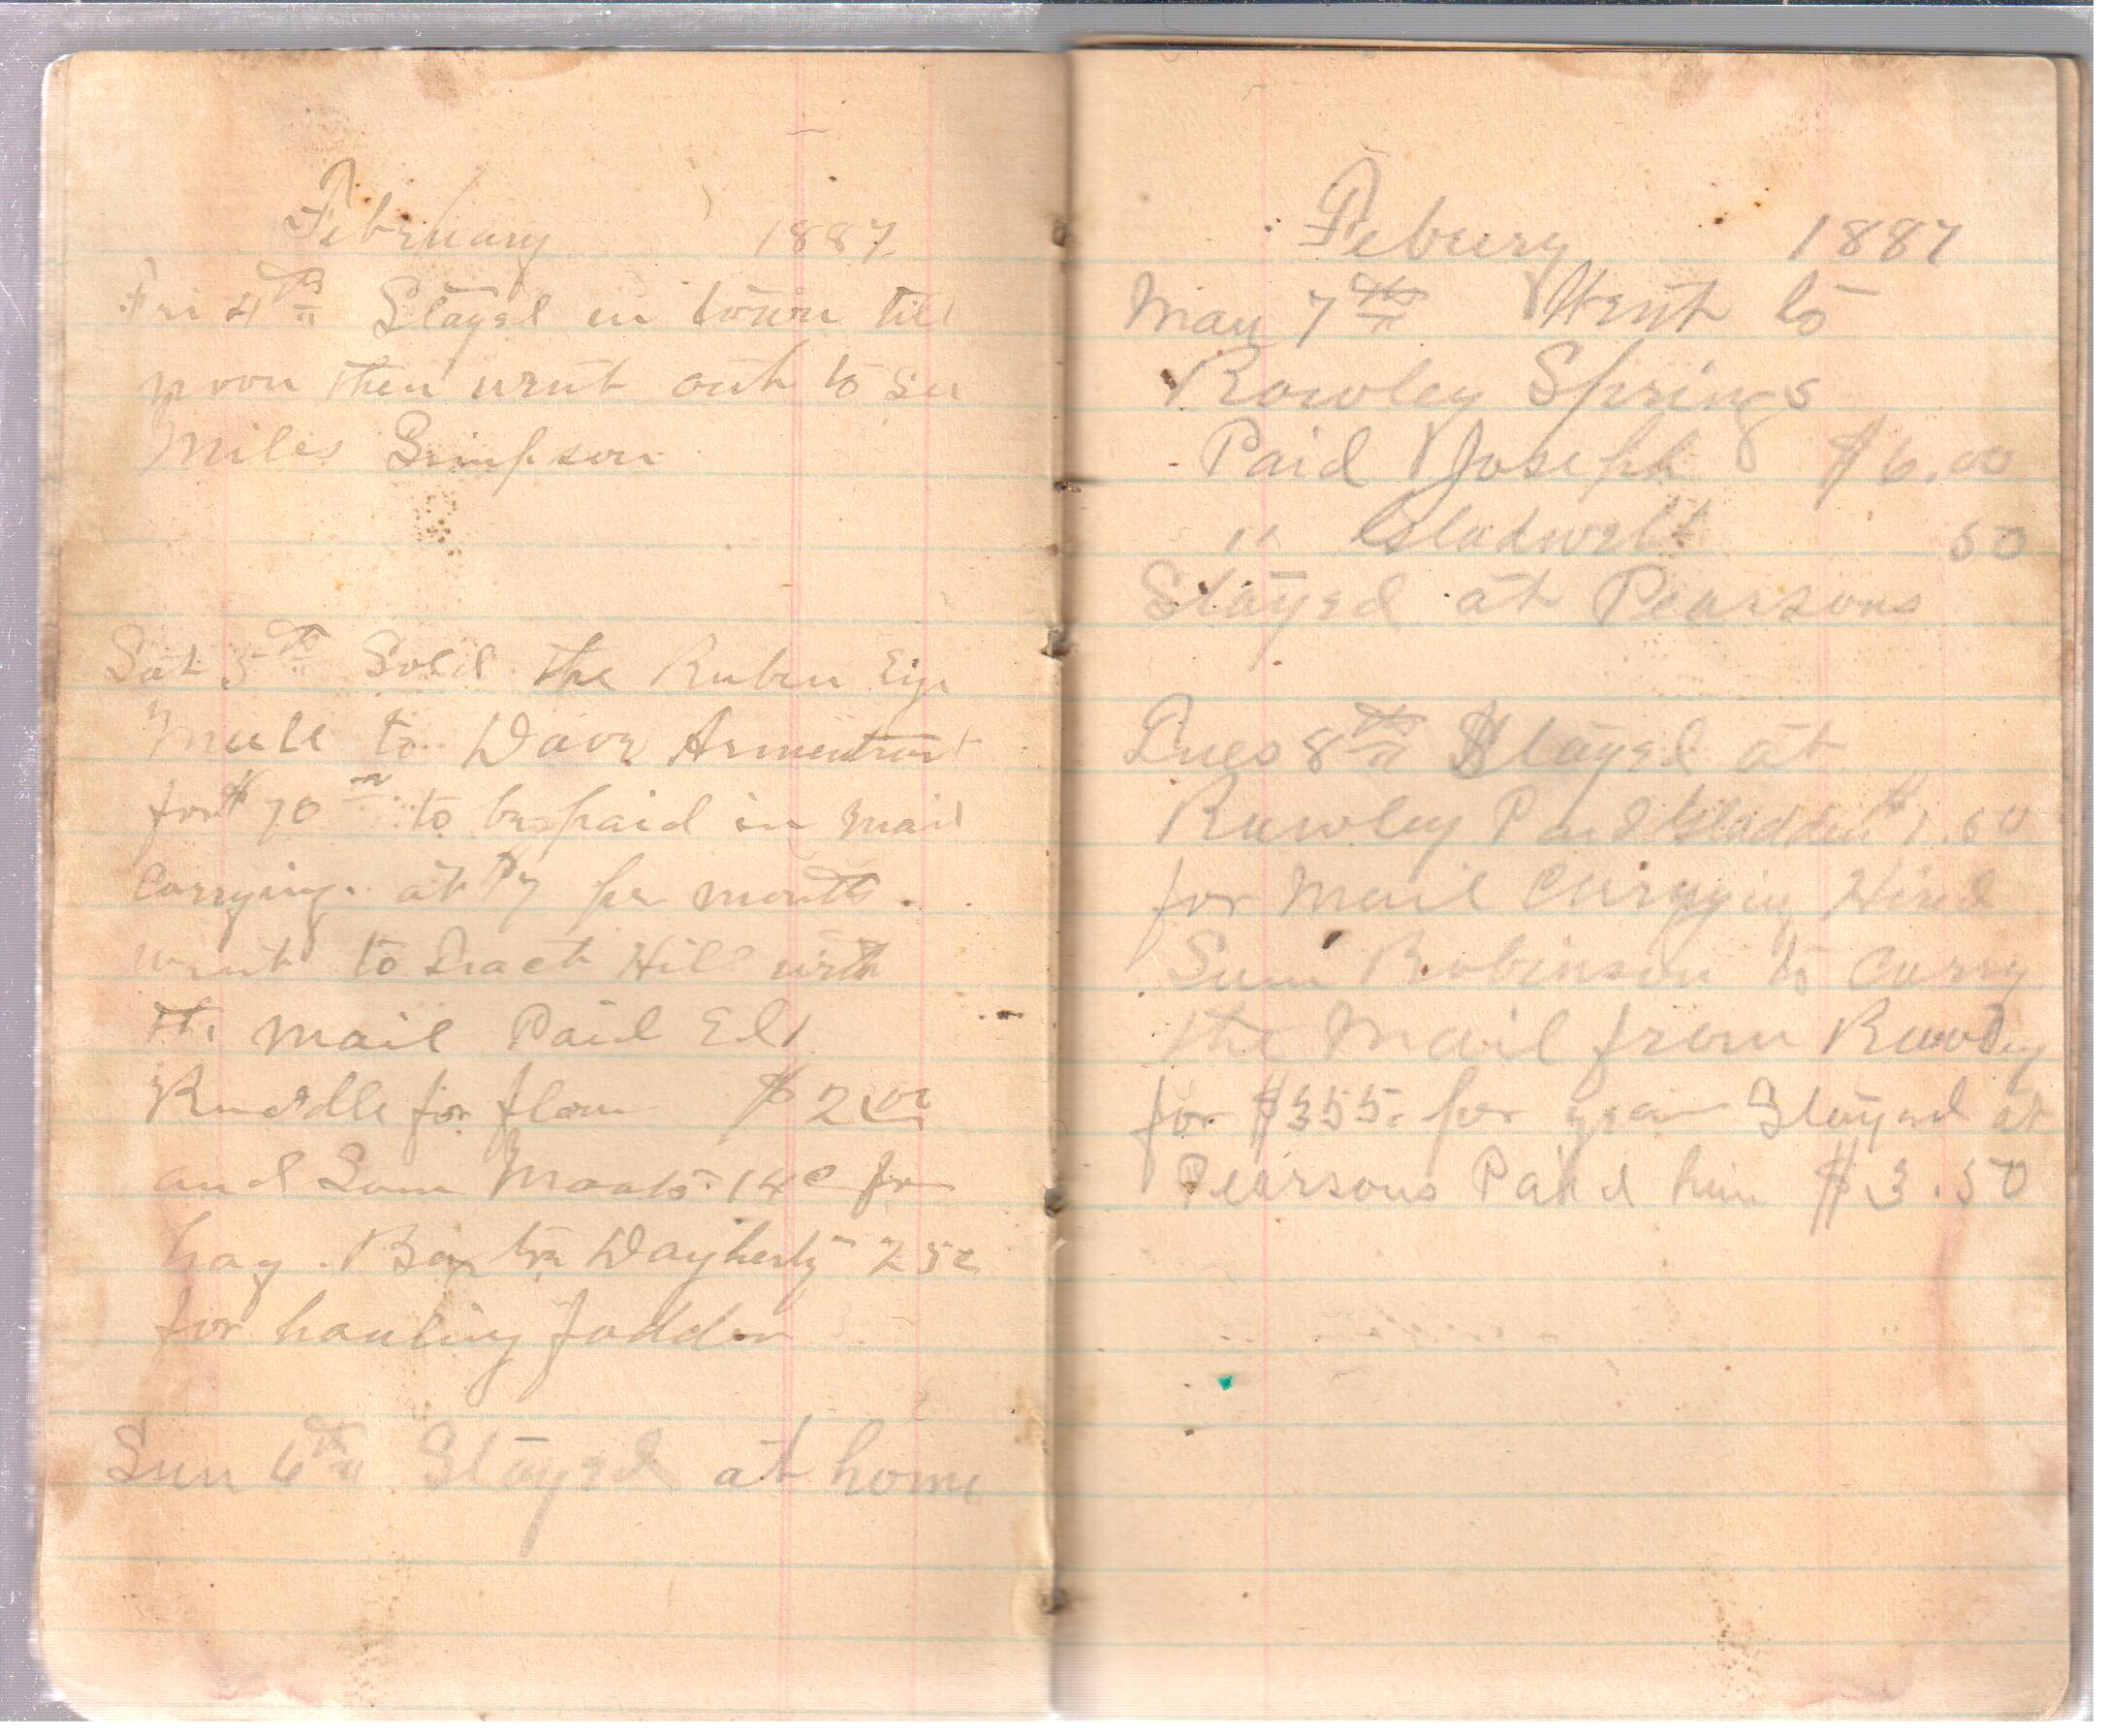 February 1887
Fri 4th Stayed in town till
noon then went out to see
Miles Simpson
Sat 5th Sold the Ruben Eye
Mule to Dave Armentrout
for $70 00 to be paid in Mail
Carrying. at $7 per month.
went to Tract Hill with
the mail Paid Eli
Ruddle for flour $2.00
and Sam Moats 14c for
hay. Dougherty 25c
for hauling fodder
Sun 6th Stayed at home
Febury 1887
Mon 7th Went to
Rawley Springs
Paid Joseph $6.00
" Gladwell 50
Stayed at Pearsons
Tues 8th Stayed at
Rawley Paid Gladden $1.60
for Mail Carrying Hired
Sam Robinson to Carry
the Mail from Rawley
for $355. per year Stayed at
Pearsons Paid him $3.50